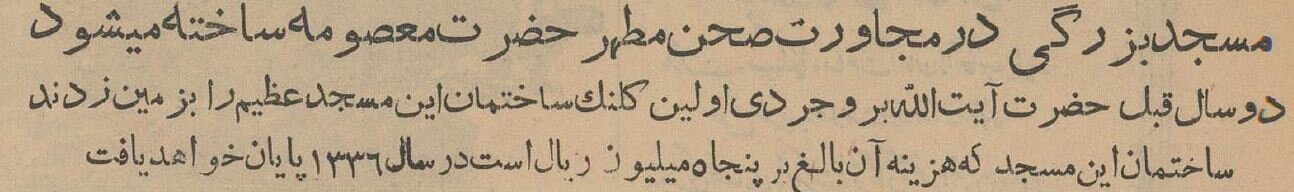 مسجد بزرگی در مجاورت صحن مطهر حضرت معصومه ساخته میشود
دو سال قبل حضرت آیت الله بروجردی اولین کلنك ساختمان این مسجد عظیم را بزمین زدند
ساختمان این مسجد که هزینه آن بالغ بر پنجاه میلیون ریال است در سال ۱۳۳۶ پایان خواهد یافت